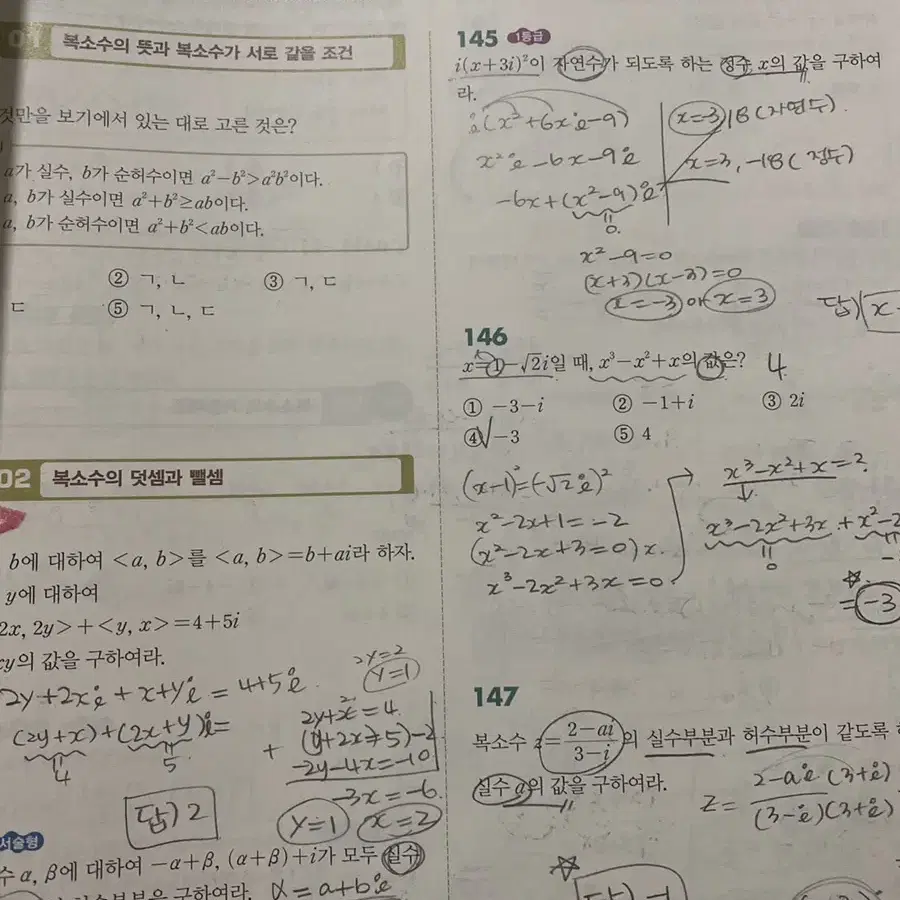 01 복소수의 뜻과 복소수가 서로 같을 조건
것만을 보기에서 있는 대로 고른 것은?
a가 실수, b가 순허수이면 a²-b²>a²b²이다.
a, b가 실수이면 a²+b²≥ab이다.
a, b가 순허수이면 a²+b²<ab이다.
② ㄱ, ㄴ ③ ㄱ, ㄷ
ㄷ ⑤ ㄱ, ㄴ, ㄷ
02 복소수의 덧셈과 뺄셈
b에 대하여 <a, b>를 <a, b>=b+ai라 하자.
y에 대하여
2x, 2y>+<y, x>=4+5i
xy의 값을 구하여라.
2y+2xi+x+yi=4+5i
(2y+x)+(2x+y)i=
4 5
2y=2
y=1
2y+x=4
+ (y+2x=5)-2
-2y-4x=-10
-3x=-6
y=1 x=2
답) 2
서술형
수 α, β에 대하여 -α+β, (α+β)+i가 모두 실수
부분을 구하여라. α=a+bi
145 1등급
i(x+3i)²이 자연수가 되도록 하는 정수 x의 값을 구하여
라.
i(x²+6xi-9)
x²i-6x-9i
-6x+(x²-9)i
0
x=3, 18(자연수)
x=3, -18(정수)
x²-9=0
(x+3)(x-3)=0
x=-3 or x=3
답) x
146
x=1-√2i일 때, x³-x²+x의 값은? 4
① -3-i ② -1+i ③ 2i
④ -3 ⑤ 4
(x-1)²=(-√2i)²
x²-2x+1=-2
(x²-2x+3=0)x
x³-2x²+3x=0
x³-x²+x=?
x³-2x²+3x+x²-2
0
=-3
147
복소수 z=(2-ai)/(3-i)의 실수부분과 허수부분이 같도록
실수 a의 값을 구하여라.
z=(2-ai)(3+i)/(3-i)(3+i)
답) -1